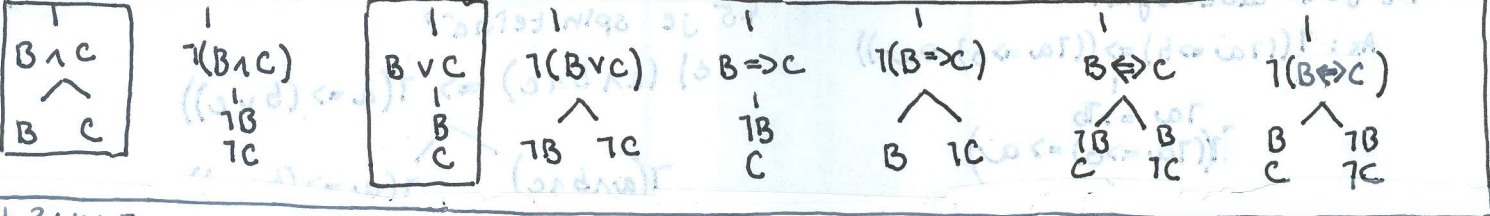 B ∧ C
B C
¬(B ∧ C)
¬B
¬C
B ∨ C
B
C
¬(B ∨ C)
¬B ¬C
B => C
¬B
C
¬(B => C)
B ¬C
B <=> C
¬B B
C ¬C
¬(B <=> C)
B ¬B
C ¬C